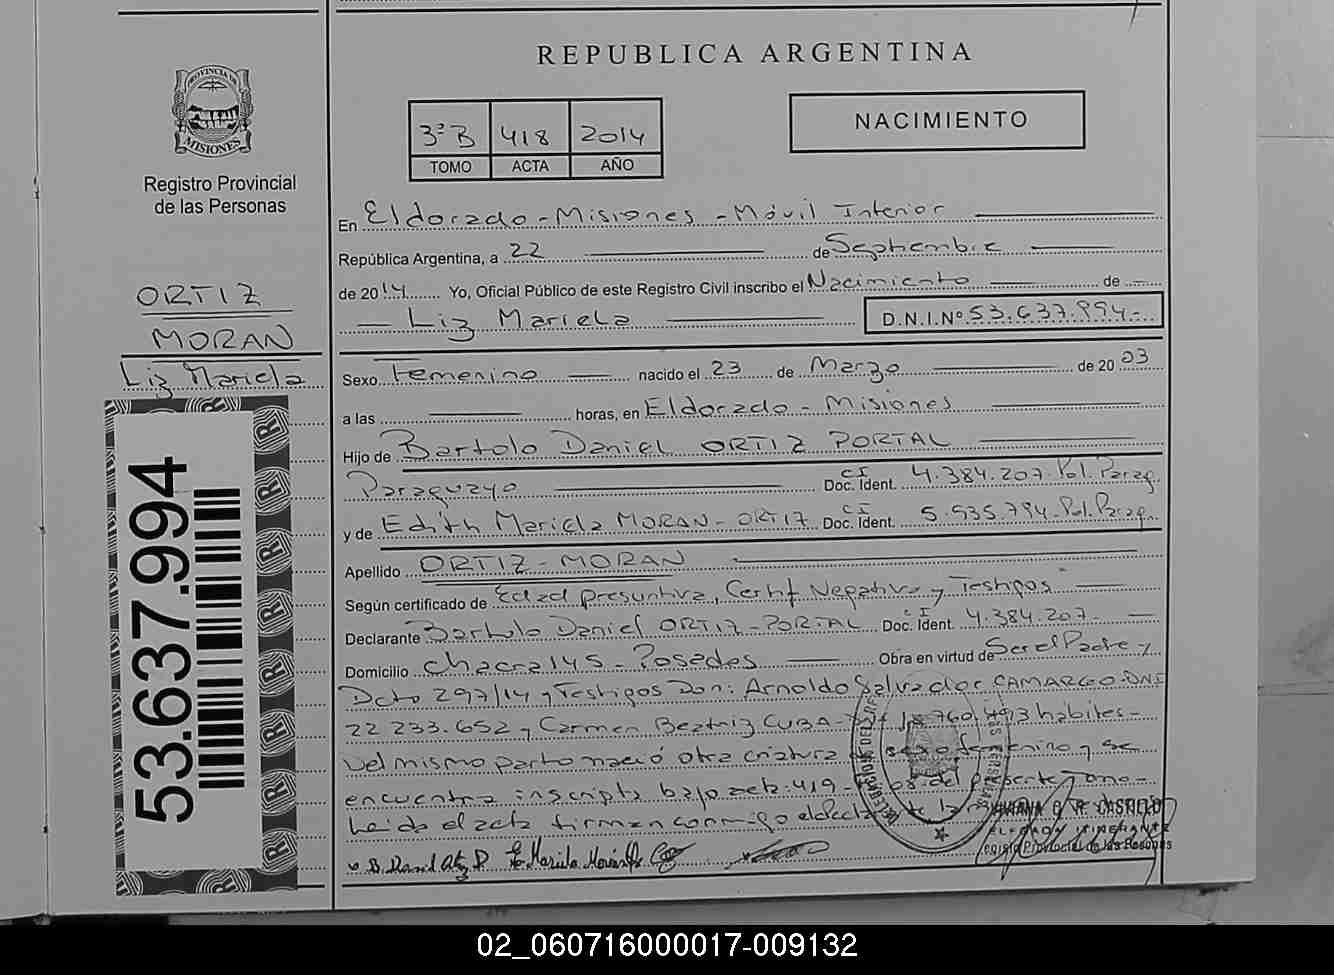 REPUBLICA ARGENTINA
PROVINCIA DE
MISIONES
Registro Provincial
de las Personas
3º B 418 2014
TOMO ACTA AÑO
NACIMIENTO
ORTIZ
MORAN
Liz Mariela
53.637.994
En Eldorado - Misiones - Móvil Interior
República Argentina, a 22 de Septiembre
de 2014 Yo, Oficial Público de este Registro Civil inscribo el Nacimiento de
Liz Mariela D.N.I.Nº 53.637.994-
Sexo Femenino nacido el 23 de Marzo de 2003
a las horas, en Eldorado - Misiones
Hijo de Bartolo Daniel ORTIZ PORTAL
Paraguayo Doc. Ident. CI 4.384.207 Pol. Parag.
y de Edith Mariela MORAN - ORTIZ Doc. Ident. CI 5.535.794 Pol. Parag.
Apellido ORTIZ - MORAN
Según certificado de Edad presuntiva, Certif Negativo y Testigos
Declarante Bartolo Daniel ORTIZ - PORTAL Doc. Ident. CI 4.384.207
Domicilio Chacra 145 - Posadas Obra en virtud de Ser el Padre y
Dcto 297/14 y Testigos Don: Arnoldo Salvador CAMARGO DNI
22.233.652 y Carmen Beatriz CUBA 760.493 hábiles-
Del mismo parto nació otra criatura de sexo femenino y se
encuentra inscripta bajo acta: 419 del presente Tomo-
Leida el acta firman conmigo el
VIVIANA G. R. CASTILLO
Registro Provincial de las Personas
02_060716000017-009132